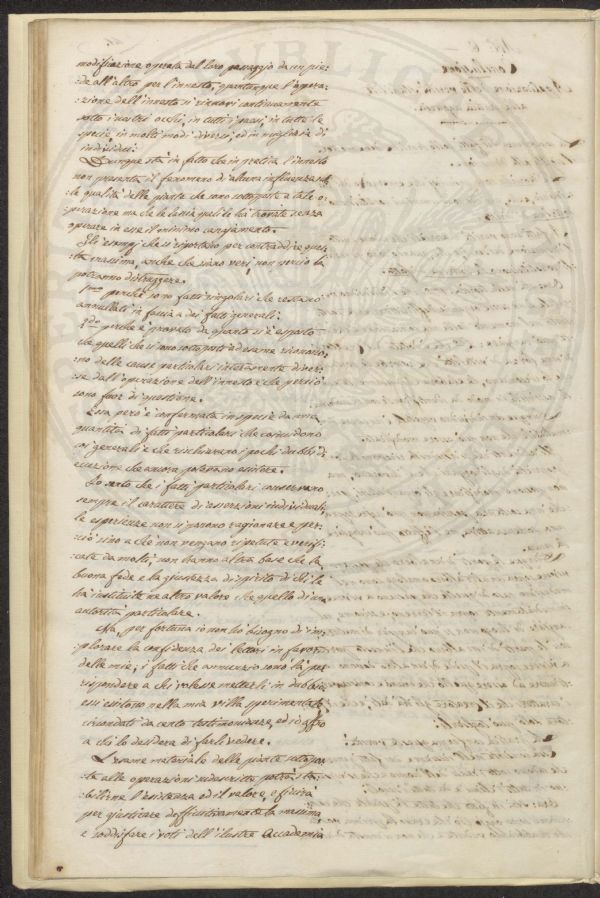 modificazione operata dal loro passaggio da un pie=
=de all'altro per l'innesto, quantunque l'opera=
=zione dell'innesto si rinovi continuamente
sotto i nostri occhi, in tutti i paesi, in tutte le
specie in molti modi diversi, ed in migliaia di
individui:
Dunque stà in fatto che in pratica l'innesto
non presenta il fenomeno di alcuna influenza sul=
=le qualità delle piante che sono sottoposte a tale o=
=perazione ma che le lascia quali le hà trovate senza
operare in esse il minimo cangiamento.
Gli esempj che si riportano per contraddire ques=
=ta massima, anche che siano veri, non perciò la
potranno distruggere.
1mo perché sono fatti singolari che restano
annullati in faccia a dei fatti generali:
2do perché è provato da quanto si è esposto
che quelli che si sono sottoposti ad esame riconosco=
=no delle cause particolari interamente diver=
=se dall'operazione dell'innesto e che perciò
sono fuor di questione.
Essa però è confermata in specie da una
quantità di fatti particolari che coincidono
coi generali e che rischiarano i pochi dubbj di
eccezione che ancora potevano esistere.
Io sento che i fatti particolari conservano
sempre il carattere di asserzioni individuali;
le esperienze non si ponno ragionare e per=
=ciò sino a che non vengano ripetute e verifi=
=cate da molti, non hanno altra base che la
buona fede e la giustezza di spirito di chi le
ha instituite ne altro valore che quello di un
autorità particolare.
Ma, per fortuna io non hò bisogno di im=
=plorare la confidenza dei lettori in favor
delle mie; i fatti che annunzio sono là per
rispondere a chi volesse metterli in dubbio;
essi esistono nella mia villa sperimentale
circondati da cento testimonianze, ed io offro
a chi lo desidera di farli vedere.
L'esame materiale delle piante sottopos=
=te alle operazioni sudescritte potrà sta=
=bilirne l'esistenza ed il valore, e finirà
per giustificare definitivamente la massima,
e soddisfare i voti dell'ilustre Accademia